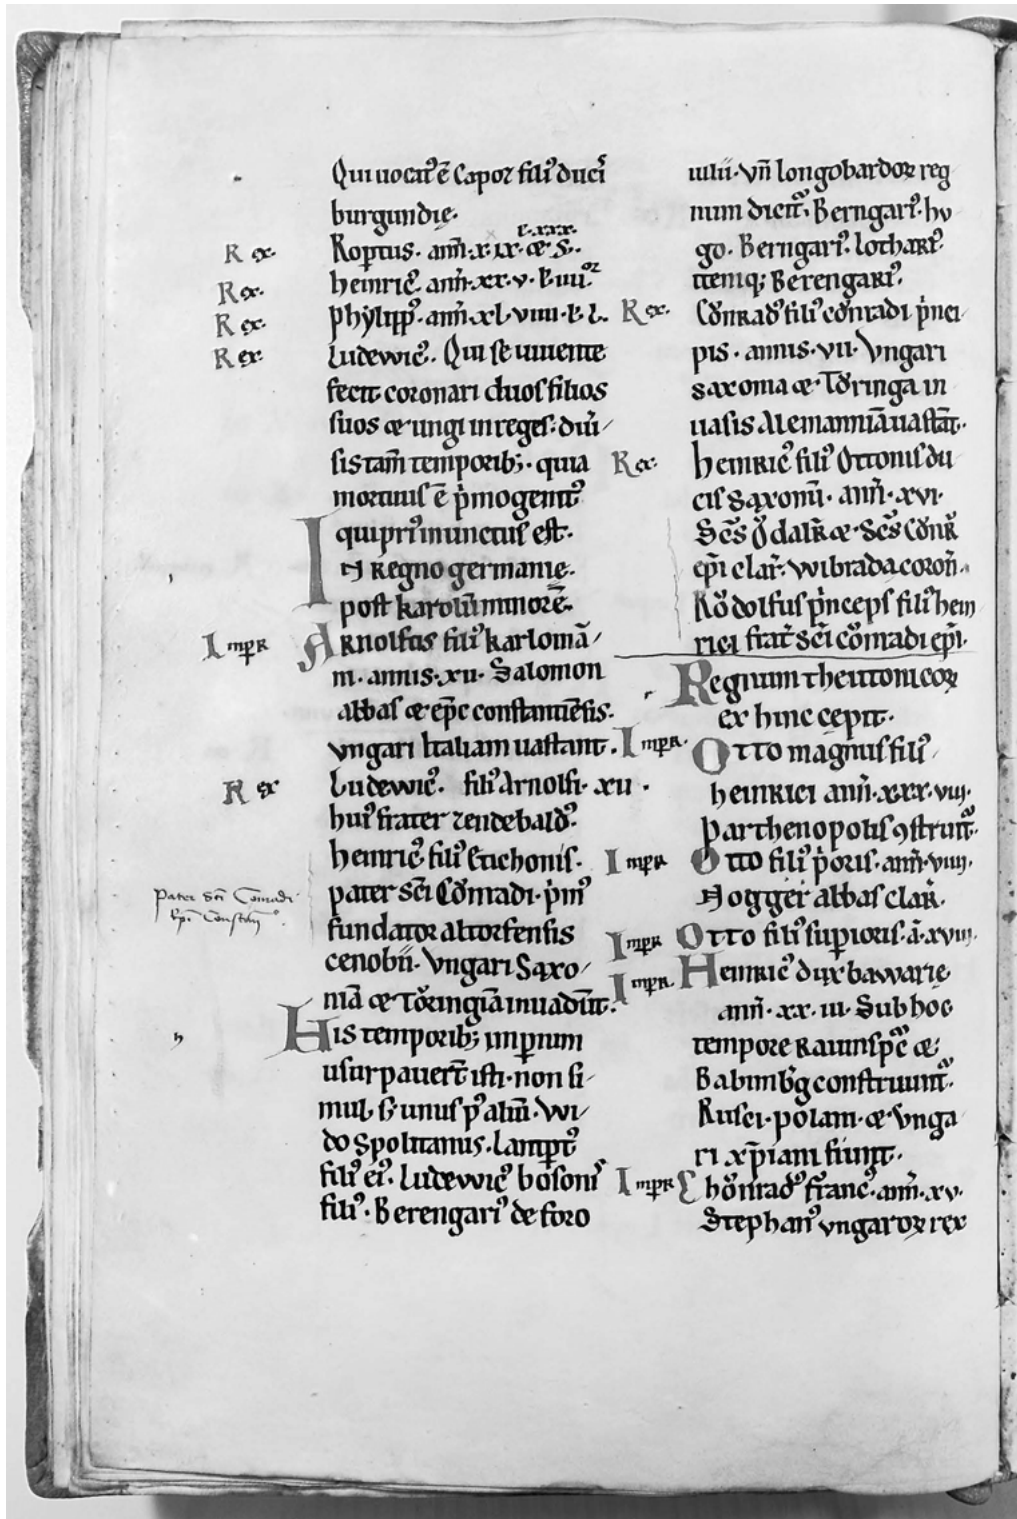 Qui uocat᷒ ē Capoꝛ filiꝰ duciˢ
burgundię.
t. xxx.
Rex. Roptus. anñ. x. ix. & S.
Rex. heinricꝰ. anñ. xx. v. t. iiii.
Rex. phylippꝰ. anñ. xl. viiii. t. L.
Rex. Ludewicꝰ. Qui se uiuente
fecit coronari duos filios
suos & ungi in reges. diui
sis tam̄ temporibꝫ. quia
mortuus ē p̄mogenitꝰ
qui priꝰ inunctus est.
IN Regno germanię.
post karolū minorē.
Imꝑr Arnolfus filiꝰ karlomā
ni. annis. xii. Salomon
abbas & ep̄c constantiēsis.
vngari Italiam uastant.
Rex Ludewicꝰ. filiꝰ Arnolfi. xii.
huiꝰ frater zendebaldꝰ.
heinricꝰ filiꝰ Etichonis.
Pater Sc̄i Conradi
Ep̄i Constan̄
pater sc̄i Cǒnradi. p̄mꝰ
fundator altorfensis
cenobii. Vngari Saxo
niā & Tǒringiā inuadūt.
His temporibꝫ imꝑium
usurpauert̄ isti. non si
mul. s; unus pꝰ aliū. Wi
do Spolitanus. Lamꝑtꝰ
filiꝰ eiꝰ. Ludewicꝰ bosoniˢ
filiꝰ. Berengariꝰ de foro
iulii. vn̄ longobardoꝝ reg
num dicit᷒. Berngariꝰ. hv
go. Berngariꝰ. lothariꝰ.
itemqꝫ Berengariꝰ.
Rex. Cǒnradꝰ filiꝰ cǒnradi p̄nci
pis. annis. vii. Vngari
saxonia & Tǒringa in
uasis Alemanniā uastāt.
Rex. heinricꝰ filiꝰ Ottonis du
cis Saxonū. anñ. xvi.
Sc̄s Ǒdalr̄ & Sc̄s Cǒnr̄
ep̄i clar̄. Wibrada coron̄.
Rǒdolfus p̄nceps filiꝰ hein
rici frat̄ sc̄i cǒnradi ep̄i.
Regnum theutonicoꝝ
ex hinc cępit.
Imꝑr. Otto magnus filiꝰ
heinrici anñ. xxx. viii.
parthenopolis ꝯstruit᷒.
Imꝑr Otto filiꝰ p̄oris. anñ. viiii.
Nogger abbas clar̄.
Imꝑr Otto filiꝰ suꝑioris. ā. xviii.
Imꝑr. Heinricꝰ dux bawarię
anñ. xx. iii. Sub hoc
tempore Rauinspc̄ &
Babinb̄g construunt᷒.
Rusci. polani. & Vnga
ri xp̄iani fiunt.
Imꝑr Chǒnradꝰ francꝰ. anñ. xv.
Stephanꝰ vngaroꝝ rex